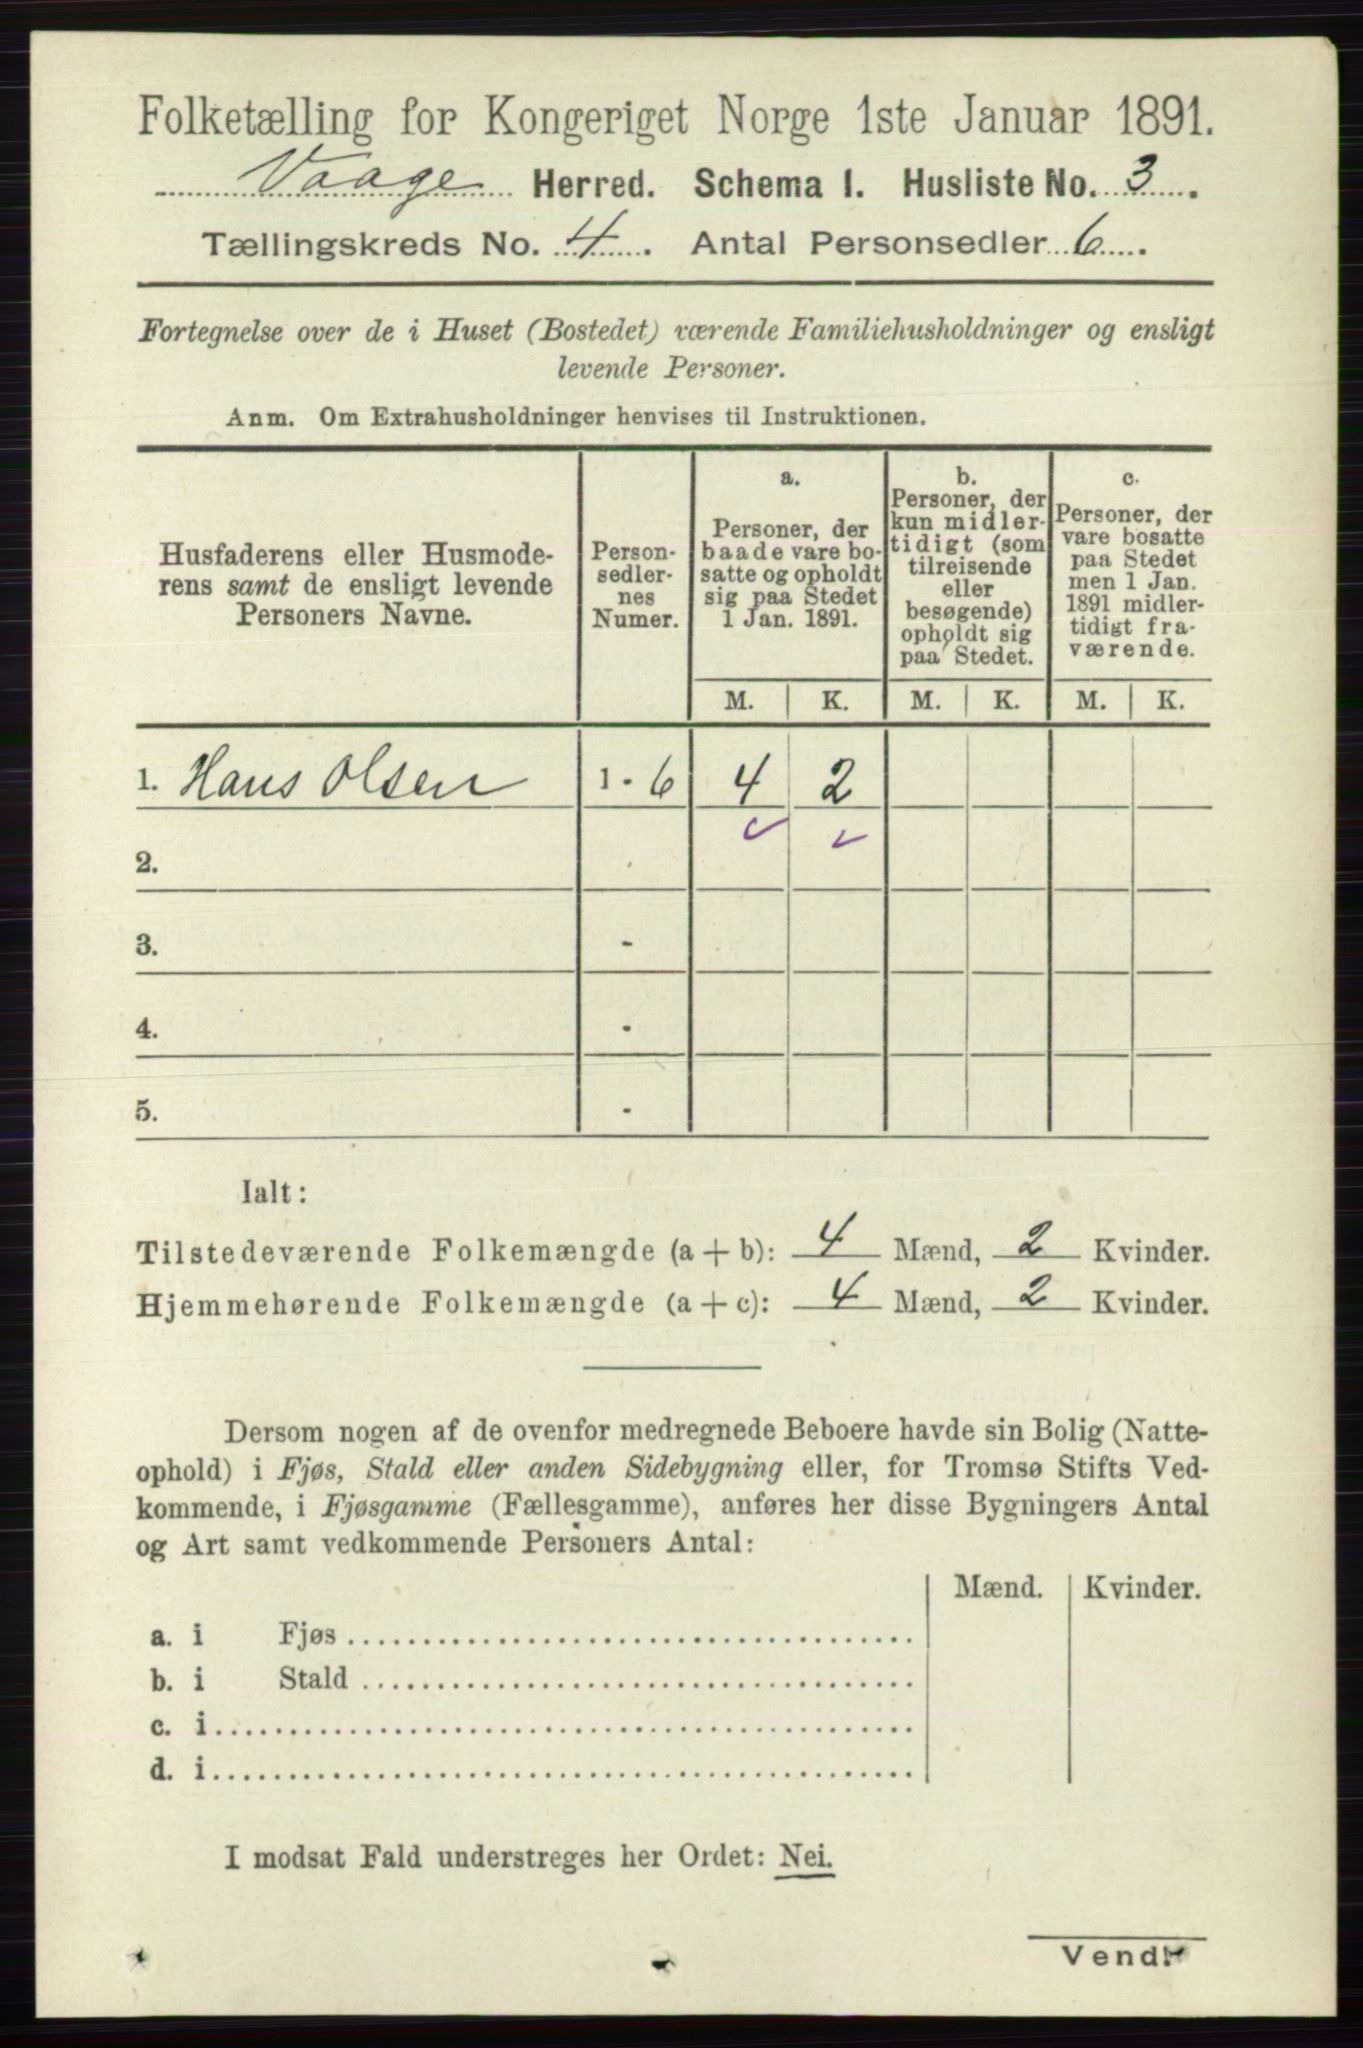 Folketælling for Kongeriget Norge 1ste Januar 1891.
Vaage Herred. Schema 1. Husliste No. 3.
Tællingskreds No. 4. Antal Personsedler 6.
Fortegnelse over de i Huset (Bostedet) værende Familiehusholdninger og ensligt
levende Personer.
Anm. Om Extrahusholdninger henvises til Instruktionen.
Husfaderens eller Husmode-
rens samt de ensligt levende
Personers Navne.
Person-
sedler-
nes
Numer.
a.
Personer, der
baade vare bo-
satte og opholdt
sig paa Stedet
1 Jan. 1891.
b.
Personer, der
kun midler-
tidigt (som
tilreisende
eller
besøgende)
opholdt sig
paa Stedet.
c.
Personer, der
vare bosatte
paa Stedet
men 1 Jan.
1891 midler-
tidigt fra-
værende.
M. K. M. K. M. K.
1. Hans Olsen 1 - 6 4 2
2.
3. -
4. -
5. -
Ialt:
Tilstedeværende Folkemængde (a + b): 4 Mænd, 2 Kvinder.
Hjemmehørende Folkemængde (a + c): 4 Mænd, 2 Kvinder.
Dersom nogen af de ovenfor medregnede Beboere havde sin Bolig (Natte-
ophold) i Fjøs, Stald eller anden Sidebygning eller, for Tromsø Stifts Ved-
kommende, i Fjøsgamme (Fællesgamme), anføres her disse Bygningers Antal
og Art samt vedkommende Personers Antal:
Mænd. Kvinder.
a. i Fjøs
b. i Stald
c. i
d. i
I modsat Fald understreges her Ordet: Nei.
Vend!